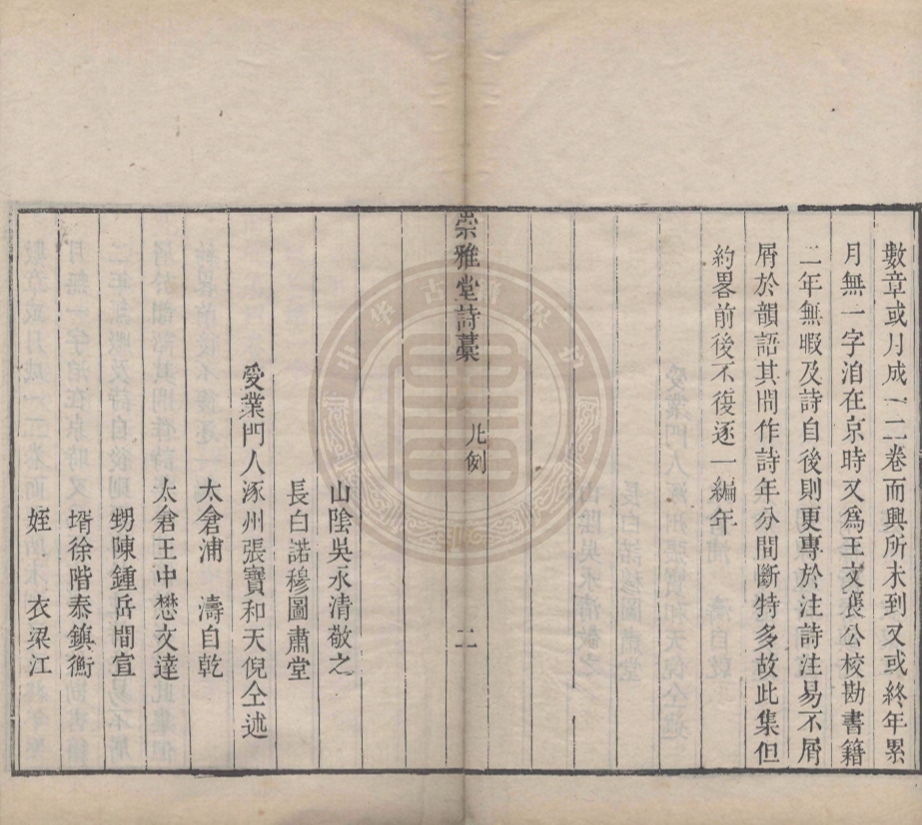 數章或月成一二卷而興所未到又或終年累
月無一字洎在京時又爲王文莊公校勘書籍
二年無暇及詩自後則更專於注詩注易不屑
屑於韻語其間作詩年分間斷特多故此集但
約畧前後不復逐一編年
崇雅堂詩藁 凡例 二
山陰吳永清敬之
長白諾穆圖肅堂
受業門人涿州張寶和天倪仝述
太倉浦濤自乾
太倉王中懋文達
甥陳鍾岳間宣
壻徐階泰鎮衡
姪衣梁江